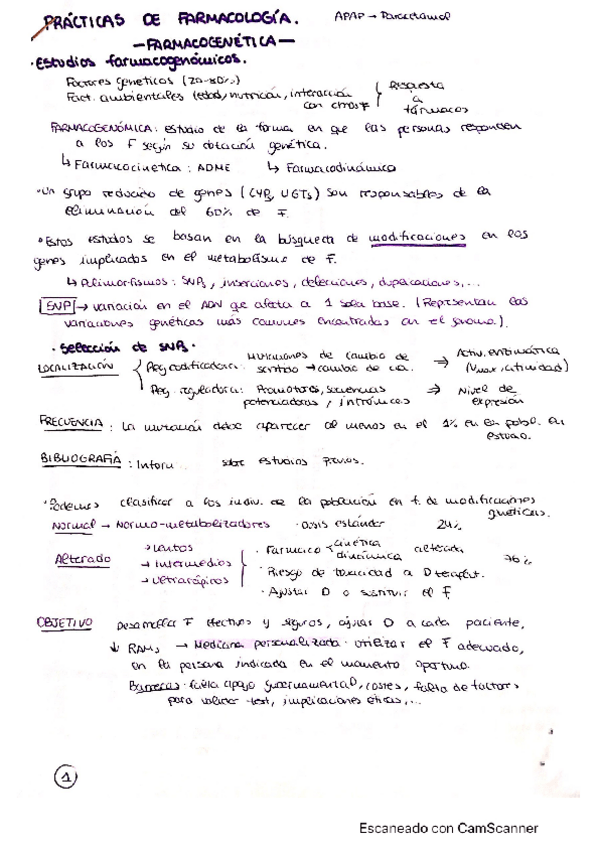 PRÁCTICAS DE FARMACOLOGÍA. APAP → Paracetamol
— FARMACOGENÉTICA —
· Estudios farmacogenómicos.
Factores genéticos (20-80%)
Fact. ambientales (edad, nutrición, interacción con otros F
Respuesta a fármacos
FARMACOGENÓMICA: estudio de la forma en que las personas responden
a los F según su dotación genética.
↳ Farmacocinética: ADME ↳ Farmacodinámica
· Un grupo reducido de genes (CYP, UGTs) son responsables de la
eliminación del 60% de F.
· Estos estudios se basan en la búsqueda de modificaciones en los
genes implicados en el metabolismo de F.
↳ Polimorfismos: SNPs, inserciones, delecciones, duplicaciones,...
SNP → variación en el ADN que afecta a 1 sola base. (Representan las
variaciones genéticas más comunes encontradas en el genoma.)
· Selección de SNPs ·
LOCALIZACIÓN Reg codificadora: Mutaciones de cambio de sentido → cambio de aa. → Activ. enzimática (Vmax, actividad)
Reg. reguladora: Promotores, secuencias potenciadoras, intrónicas ⇒ Nivel de expresión
FRECUENCIA: La mutación debe aparecer al menos en el 1% en la pobl. en estudio.
BIBLIOGRAFÍA: Inform sobre estudios previos.
· Podemos clasificar a los indiv. de la población en f. de modificaciones genéticas.
Normal → Normo-metabolizadores · dosis estándar 24%
Alterado → Lentos → Intermedios → Ultrarrápidos
· Farmaco cinética dinámica alterada 76%
· Riesgo de toxicidad a D terapéut.
· Ajustar D o sustituir el F
OBJETIVO Desarrollar F efectivos y seguros, ajustar D a cada paciente,
↓ RAMs → Medicina personalizada · utilizar el F adecuado,
en la persona indicada en el momento oportuno.
Barreras · falta apoyo gubernamental, costes, falta de factors
para validar test, implicaciones éticas,...
1
Escaneado con CamScanner